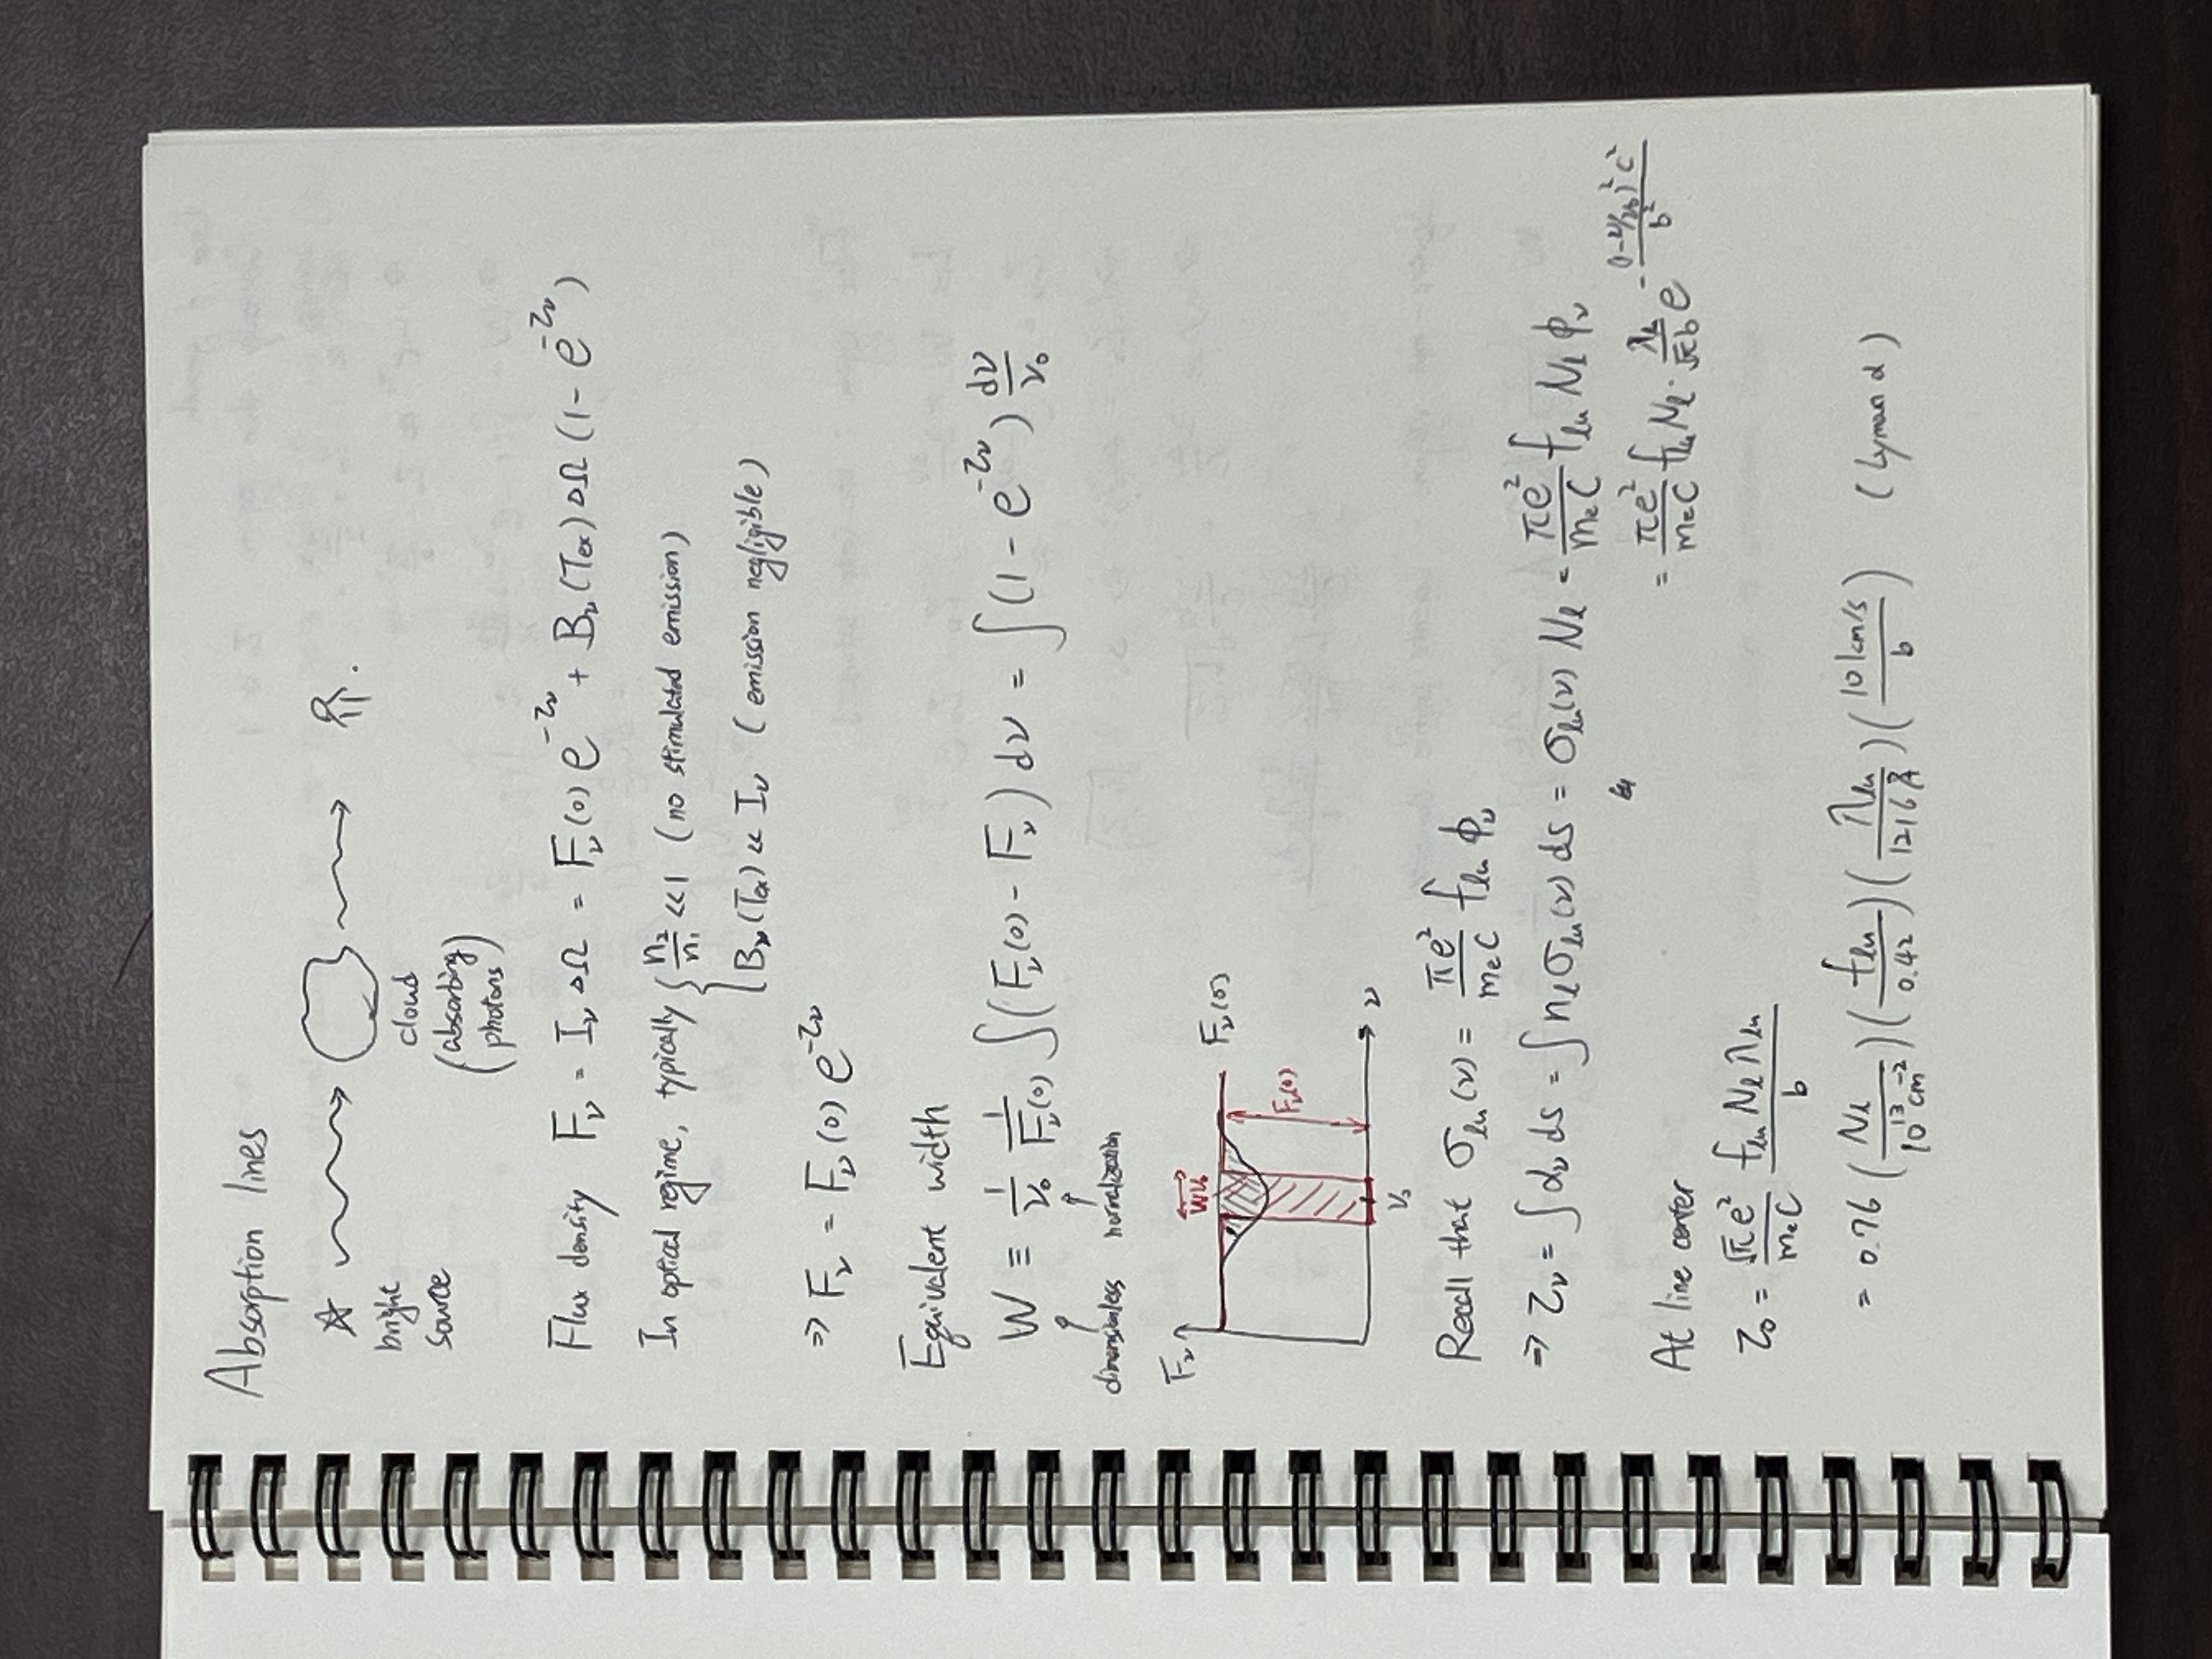 Absorption lines
bright source
cloud
(absorbing photons)
Flux density F_ν = I_ν ΔΩ = F_ν(0) e^{-τ_ν} + B_ν(T_ex) ΔΩ (1 - e^{-τ_ν})
In optical regime, typically { n_2/n_1 << 1 (no stimulated emission)
B_ν(T_ex) << I_ν (emission negligible)
⇒ F_ν = F_ν(0) e^{-τ_ν}
Equivalent width
W ≡ 1/ν_0 1/F_ν(0) ∫(F_ν(0) - F_ν) dν = ∫(1 - e^{-τ_ν}) dν/ν_0
dimensionless normalization
F_ν Wν_0 F_ν(0)
F_ν(0)
ν
ν_0
Recall that σ_lu(ν) = πe^2/m_e c f_lu ϕ_ν
⇒ τ_ν = ∫α_ν ds = ∫n_l σ_lu(ν) ds = σ_lu(ν) N_l = πe^2/m_e c f_lu N_l ϕ_ν
= πe^2/m_e c f_lu N_l · λ_lu/√π b e^{-(1-ν/ν_0)^2 c^2/b^2}
At line center
τ_0 = √π e^2/m_e c f_lu N_l λ_lu/b
= 0.76 (N_l/10^13 cm^-2)(f_lu/0.42)(λ_lu/1216 Å)(10 km/s/b) (Lyman α)